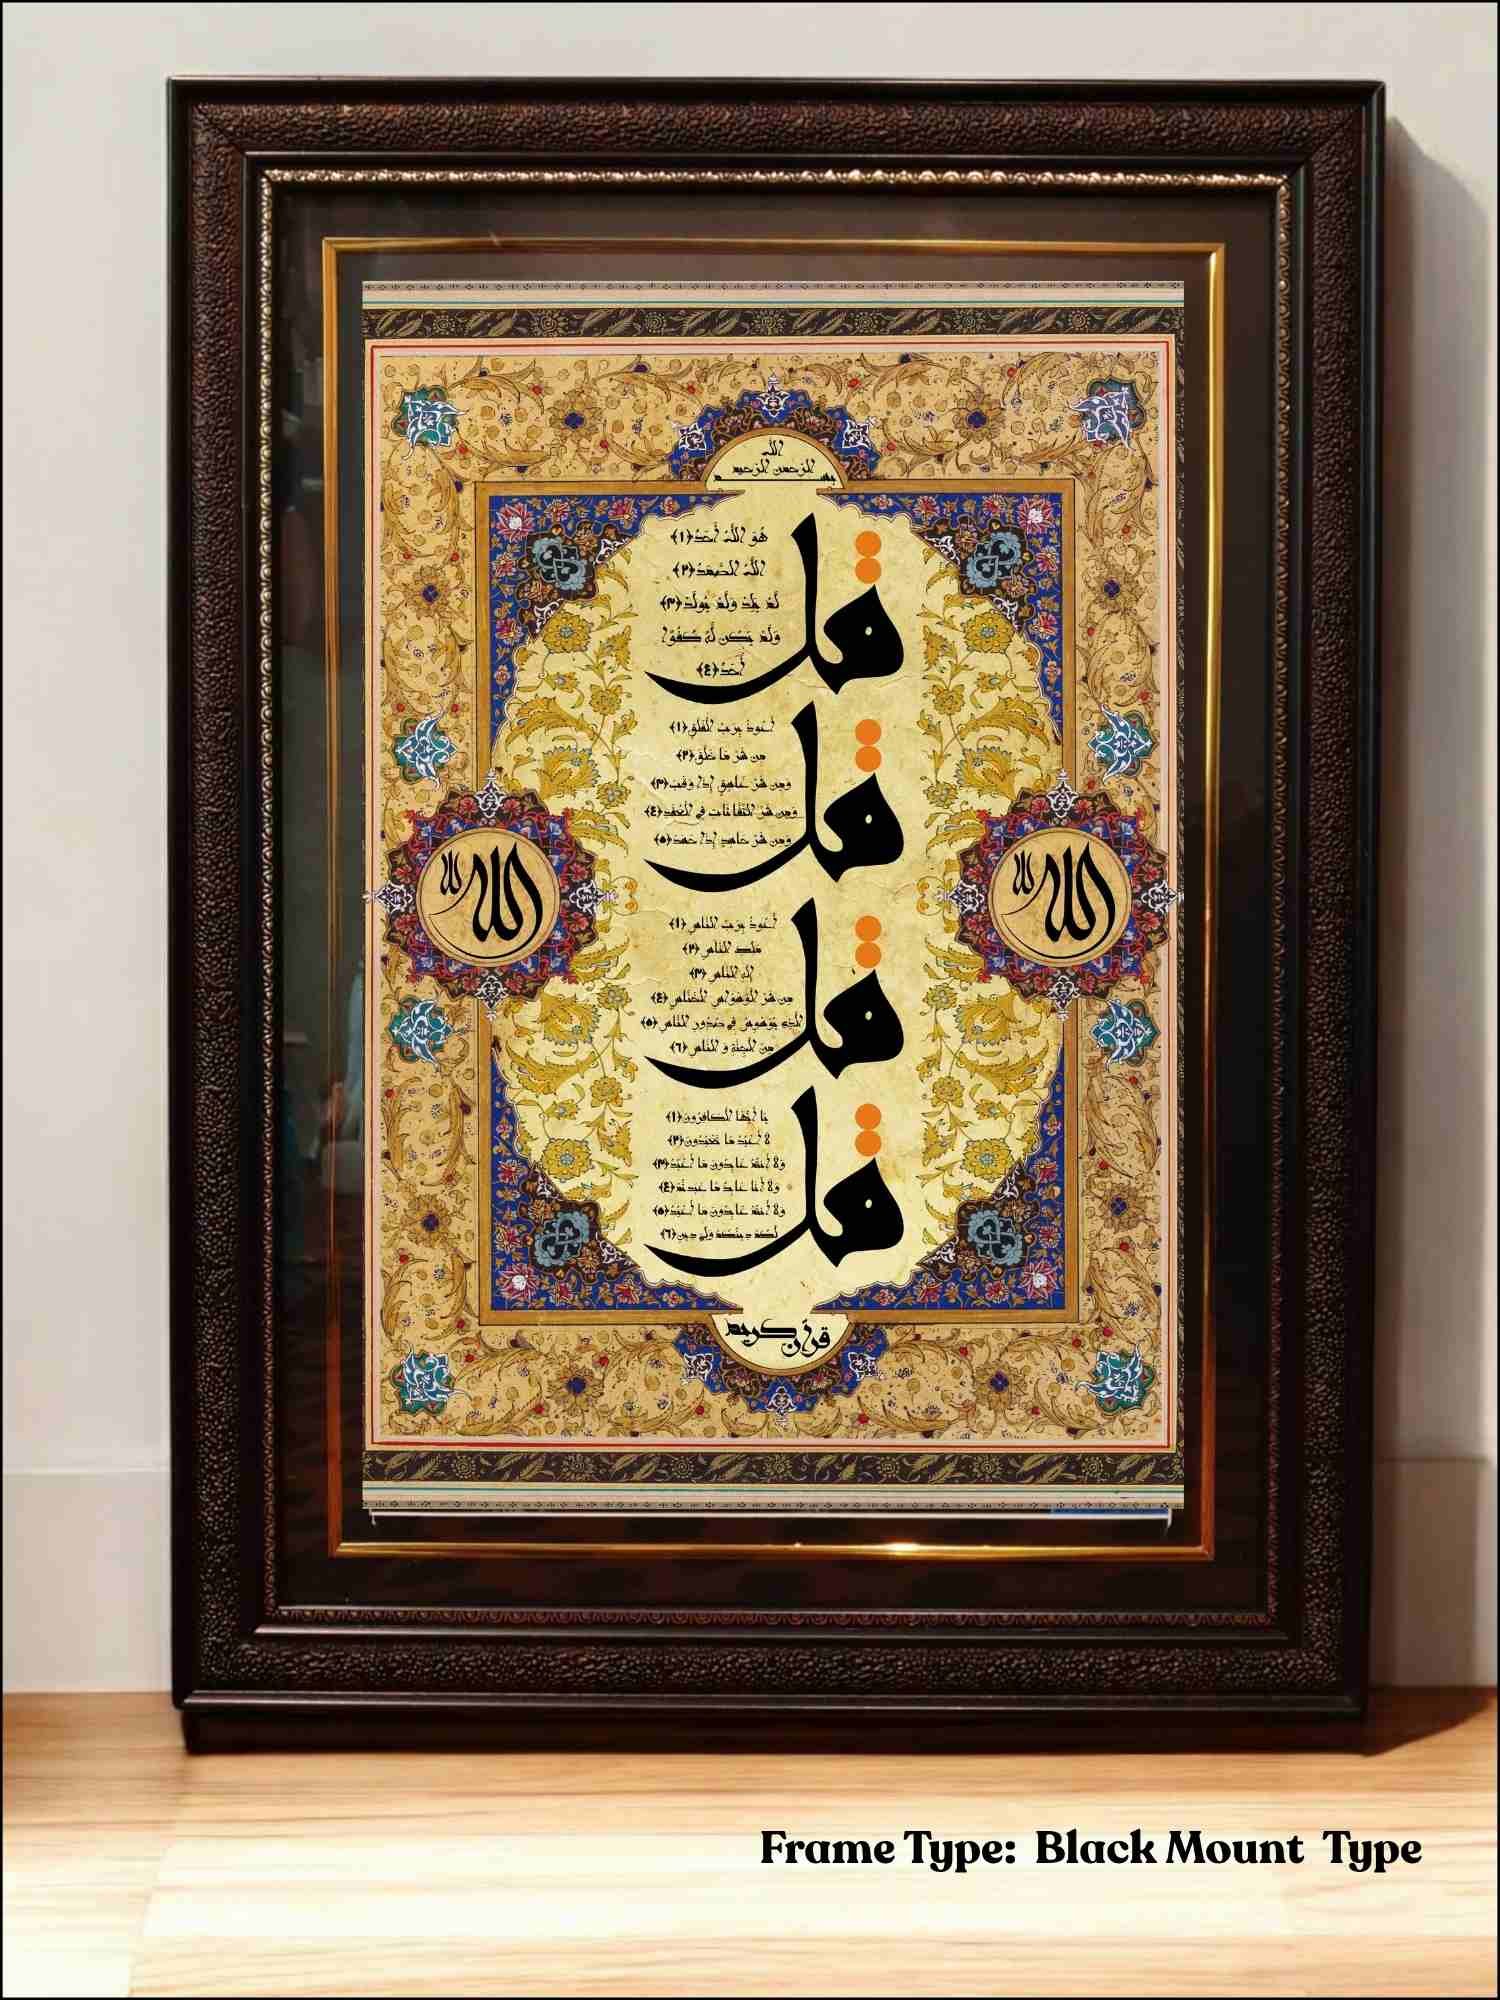 الله
الرحمن الرحيم
بسم
قل
هُوَ اللَّهُ أَحَدٌ ﴿١﴾
اللَّهُ الصَّمَدُ ﴿٢﴾
لَمْ يَلِدْ وَلَمْ يُولَدْ ﴿٣﴾
وَلَمْ يَكُن لَّهُ كُفُوًا
أَحَدٌ ﴿٤﴾
قل
أَعُوذُ بِرَبِّ الْفَلَقِ ﴿١﴾
مِن شَرِّ مَا خَلَقَ ﴿٢﴾
وَمِن شَرِّ غَاسِقٍ إِذَا وَقَبَ ﴿٣﴾
وَمِن شَرِّ النَّفَّاثَاتِ فِي الْعُقَدِ ﴿٤﴾
وَمِن شَرِّ حَاسِدٍ إِذَا حَسَدَ ﴿٥﴾
الله
الله
قل
أَعُوذُ بِرَبِّ النَّاسِ ﴿١﴾
مَلِكِ النَّاسِ ﴿٢﴾
إِلَهِ النَّاسِ ﴿٣﴾
مِن شَرِّ الْوَسْوَاسِ الْخَنَّاسِ ﴿٤﴾
الَّذِي يُوَسْوِسُ فِي صُدُورِ النَّاسِ ﴿٥﴾
مِنَ الْجِنَّةِ وَ النَّاسِ ﴿٦﴾
قل
يَا أَيُّهَا الْكَافِرُونَ ﴿١﴾
لَا أَعْبُدُ مَا تَعْبُدُونَ ﴿٢﴾
وَلَا أَنتُمْ عَابِدُونَ مَا أَعْبُدُ ﴿٣﴾
وَلَا أَنَا عَابِدٌ مَّا عَبَدتُّمْ ﴿٤﴾
وَلَا أَنتُمْ عَابِدُونَ مَا أَعْبُدُ ﴿٥﴾
لَكُمْ دِينُكُمْ وَلِيَ دِينِ ﴿٦﴾
قرآن كريم
Frame Type: Black Mount Type